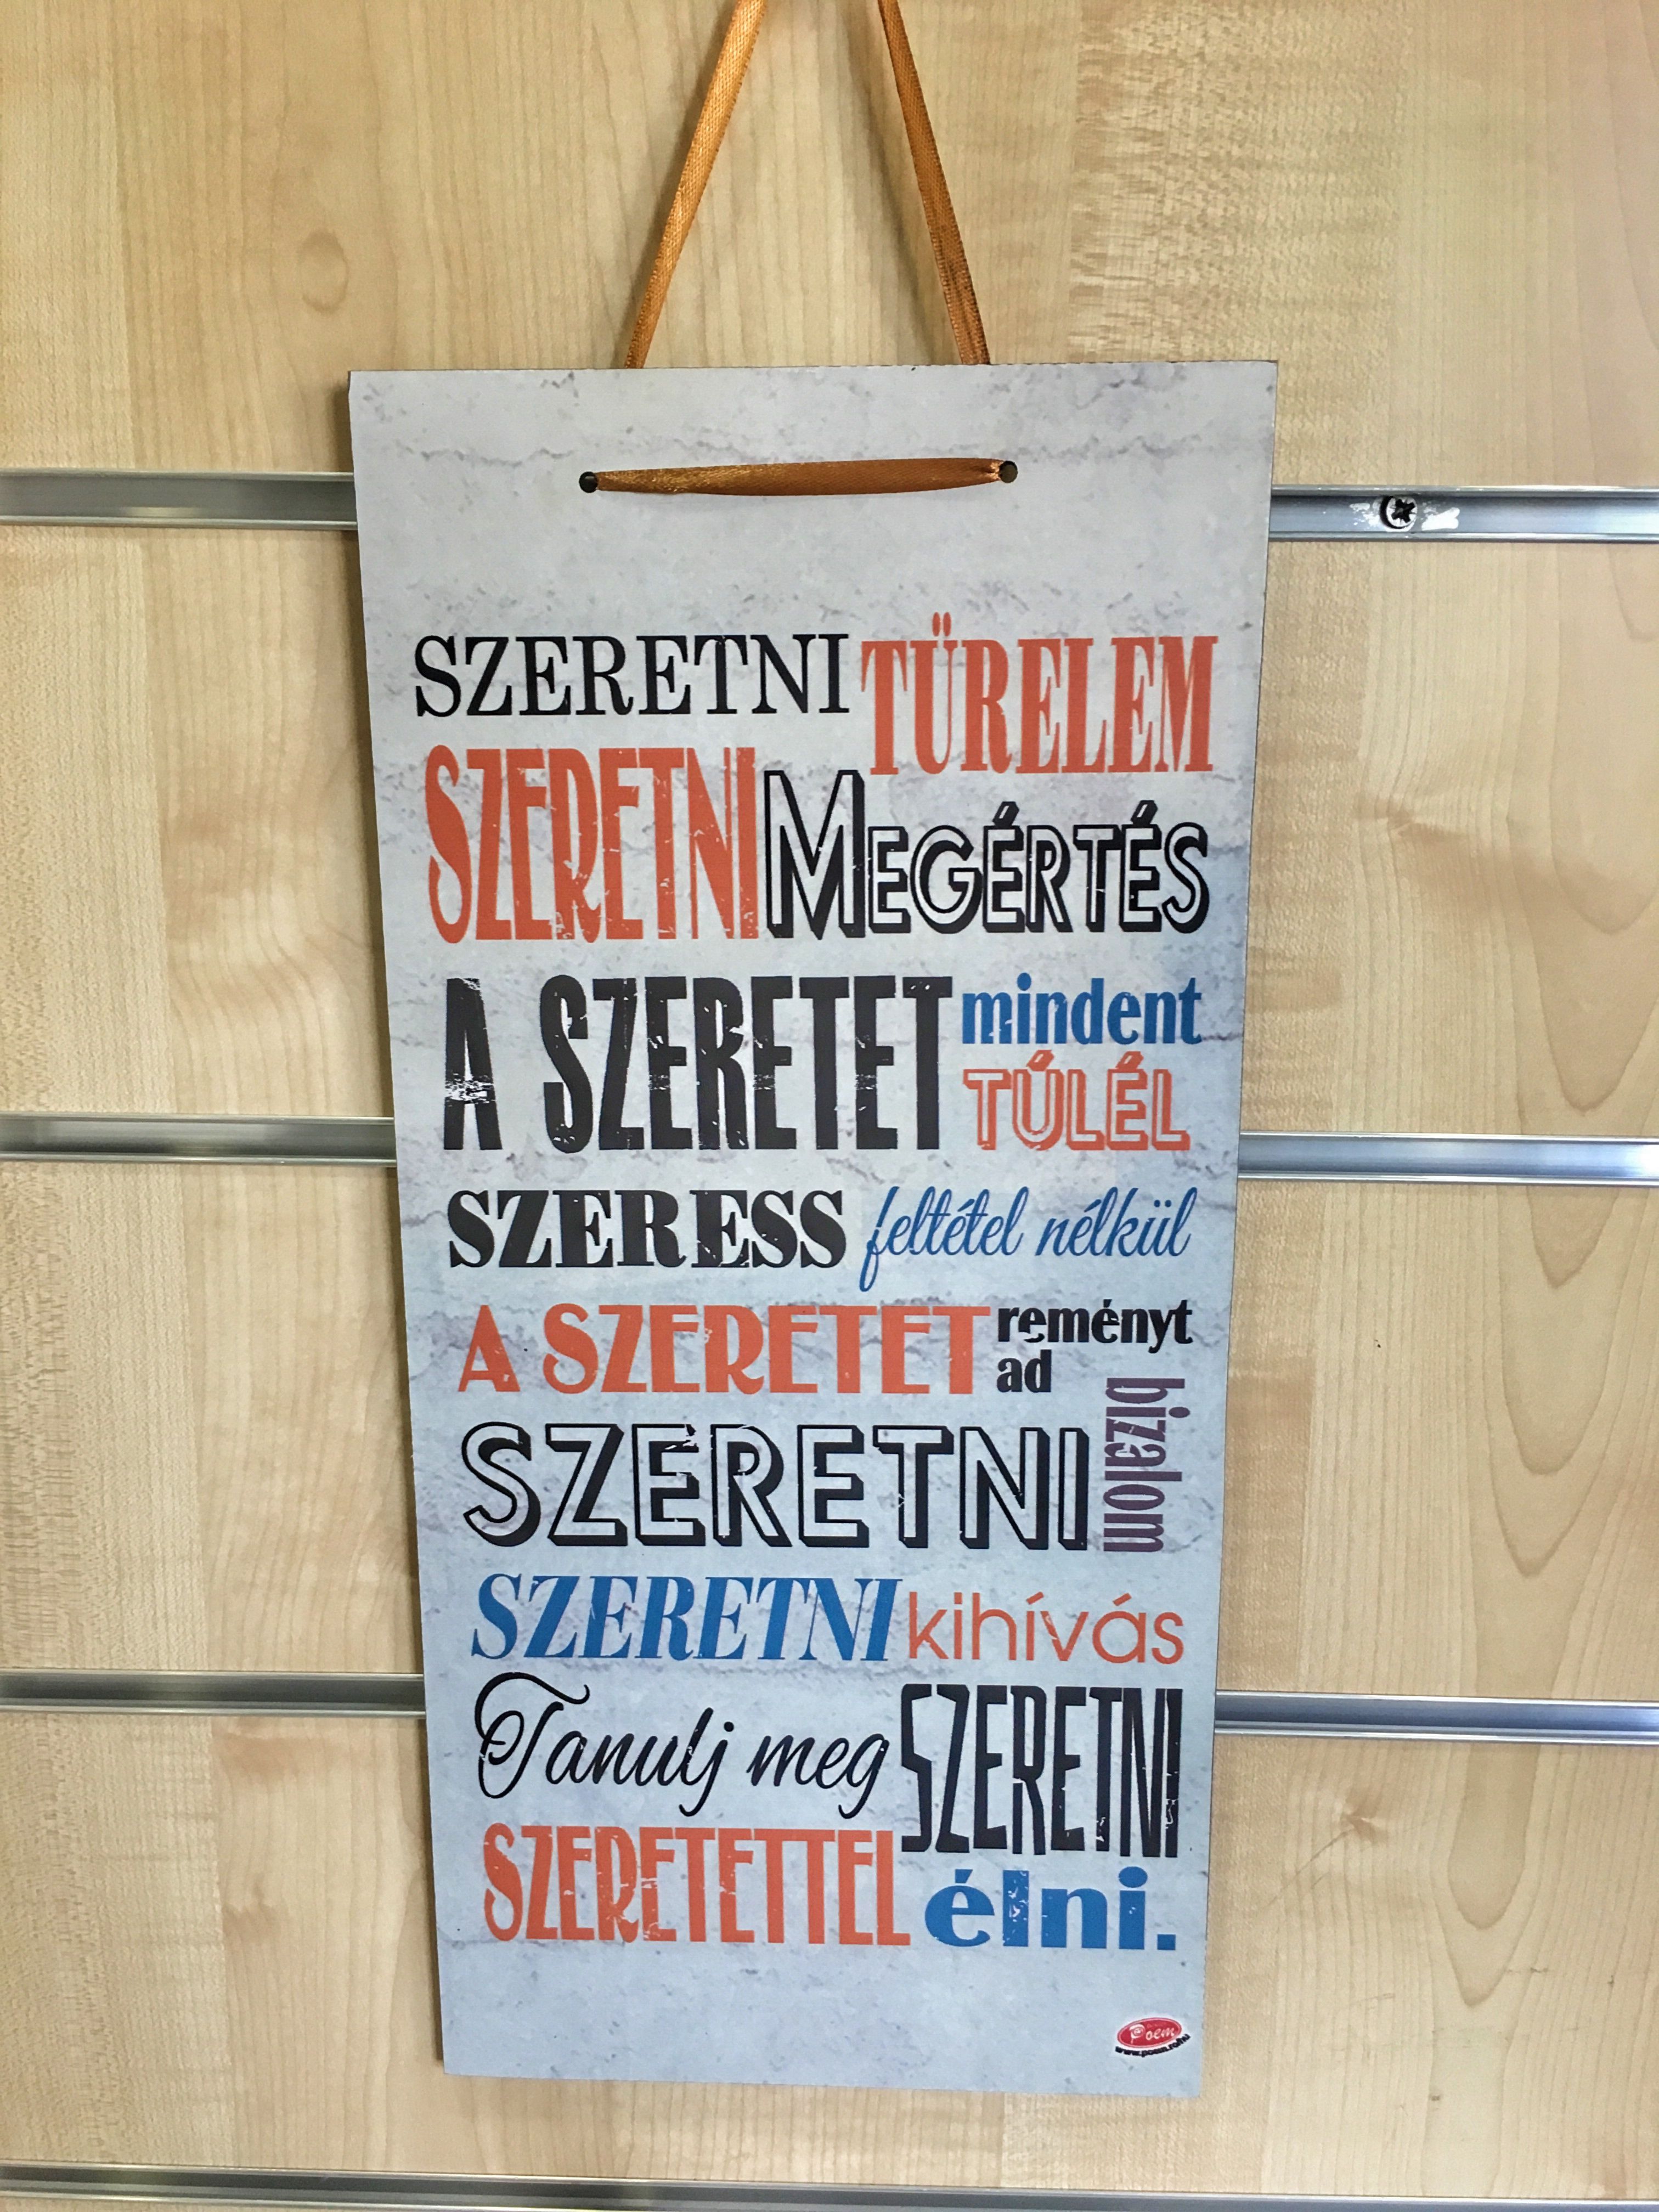 SZERETNI TÜRELEM
SZERETNI MEGÉRTÉS
A SZERETET mindent TÚLÉL
SZERESS feltétel nélkül
A SZERETET reményt ad
SZERETNI bizalom
SZERETNI kihívás
Tanulj meg SZERETNI
SZERETETTEL élni.
Poem